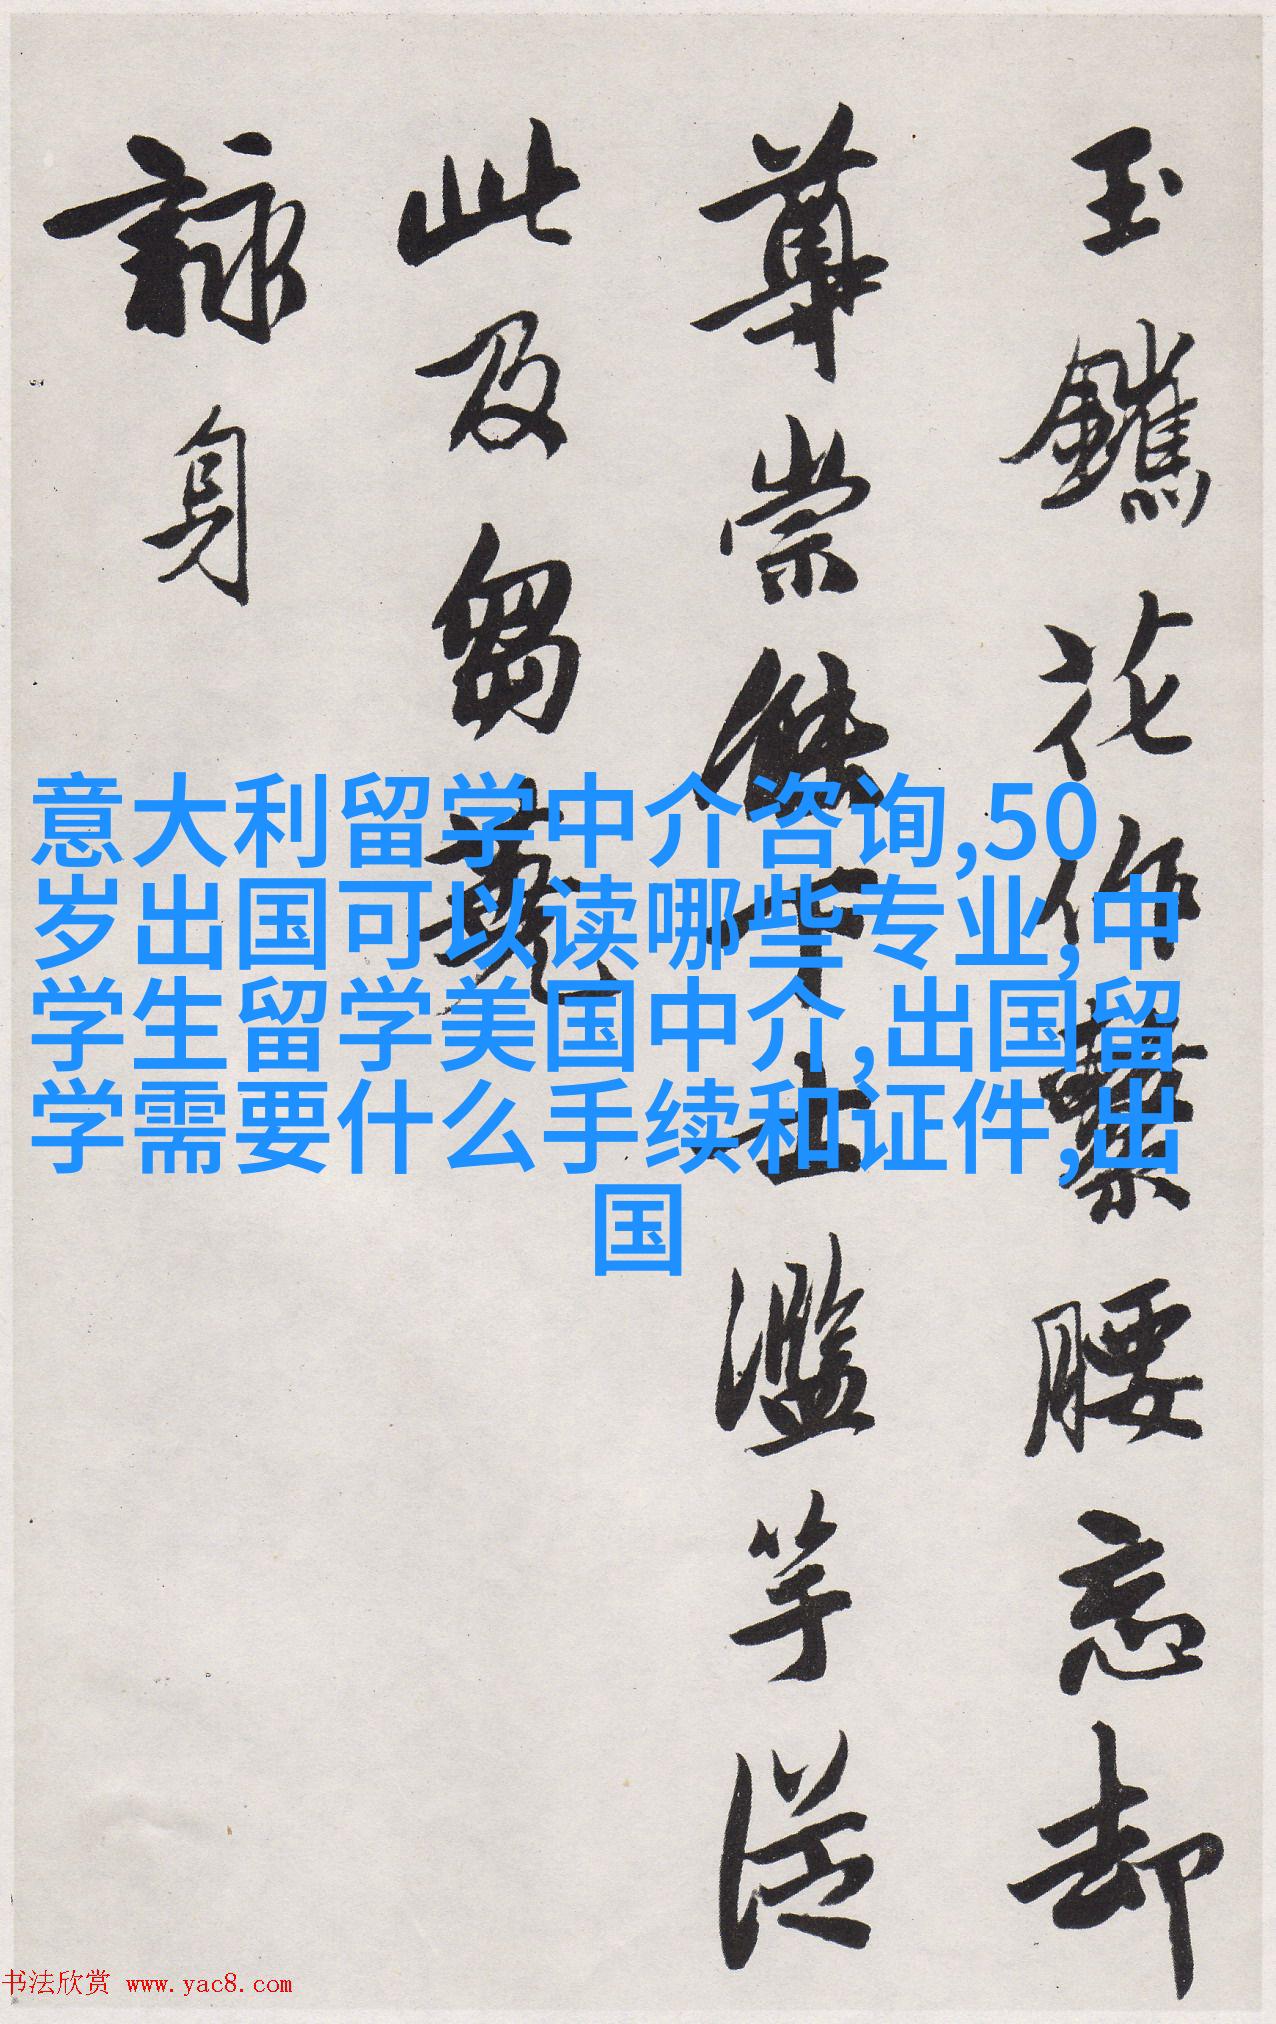 玉鑱花作繫腰忘却
尊崇傑下士濫竽從
此及芻蕘
詠身
意大利留学中介咨询,50
岁出国可以读哪些专业,中
学生留学美国中介,出国留
学需要什么手续和证件,出
国
书法欣赏 www.yac8.com